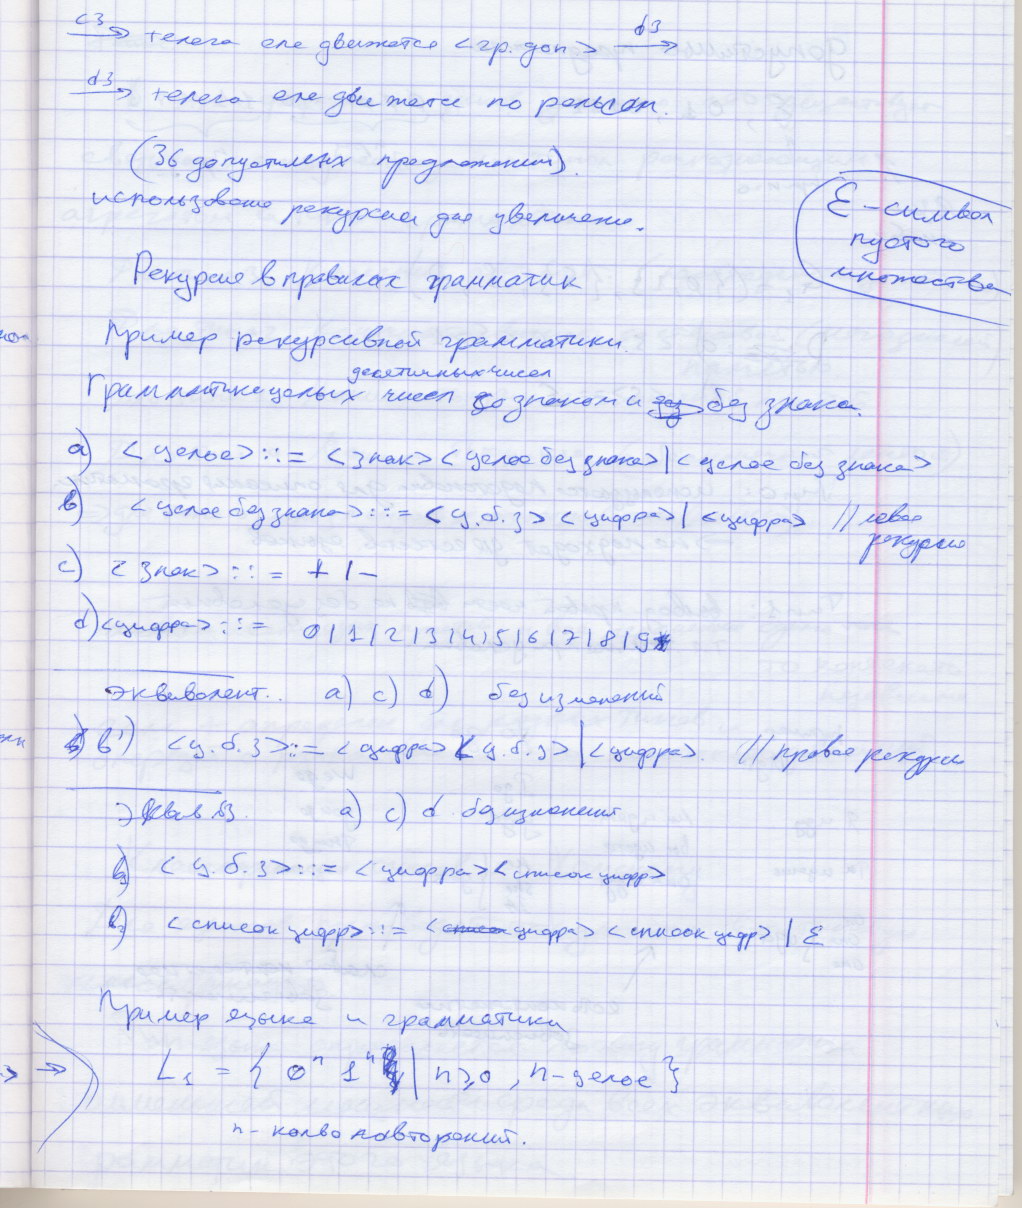 c3 → телега еле движется <гр. доп> d3 →
d3 → телега еле движется по рельсам.
(36 допустимых предложений).
использование рекурсии для увеличения.
ε – символ
пустого
множества
Рекурсия в правилах грамматик
Пример рекурсивной грамматики.
десятичных чисел
Грамматика целых чисел со знаком и без знака.
a) <целое> ::= <знак> <целое без знака> | <целое без знака>
b) <целое без знака> ::= <ц.б.з> <цифра> | <цифра> // левая
рекурсия
c) <знак> ::= + | -
d) <цифра> ::= 0 | 1 | 2 | 3 | 4 | 5 | 6 | 7 | 8 | 9
Эквивалент.. a) c) d) без изменений
b') <ц.б.з> ::= <цифра> <ц.б.з> | <цифра>. // правая рекурсия
Эквив a) c) d. без изменений
<ц.б.з> ::= <цифра> <список цифр>
<список цифр> ::= <цифра> <список цифр> | ε
Пример языка и грамматики
→ L₁ = { 0ⁿ 1ⁿ | n ≥ 0, n - целое }
n - колво повторений.